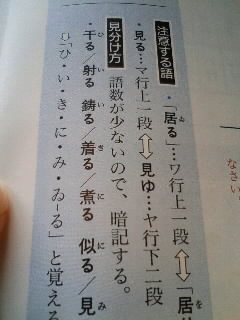 なさい
注意する語
・「居る」…ワ行上一段⇔「居
・見る…マ行上一段⇔見ゆ…ヤ行下二段
見分け方 語数が少ないので、暗記する。
・干る/射る 鋳る/着る/煮る 似る/見
「ひ・い・き・に・み・ゐ-る」と覚える